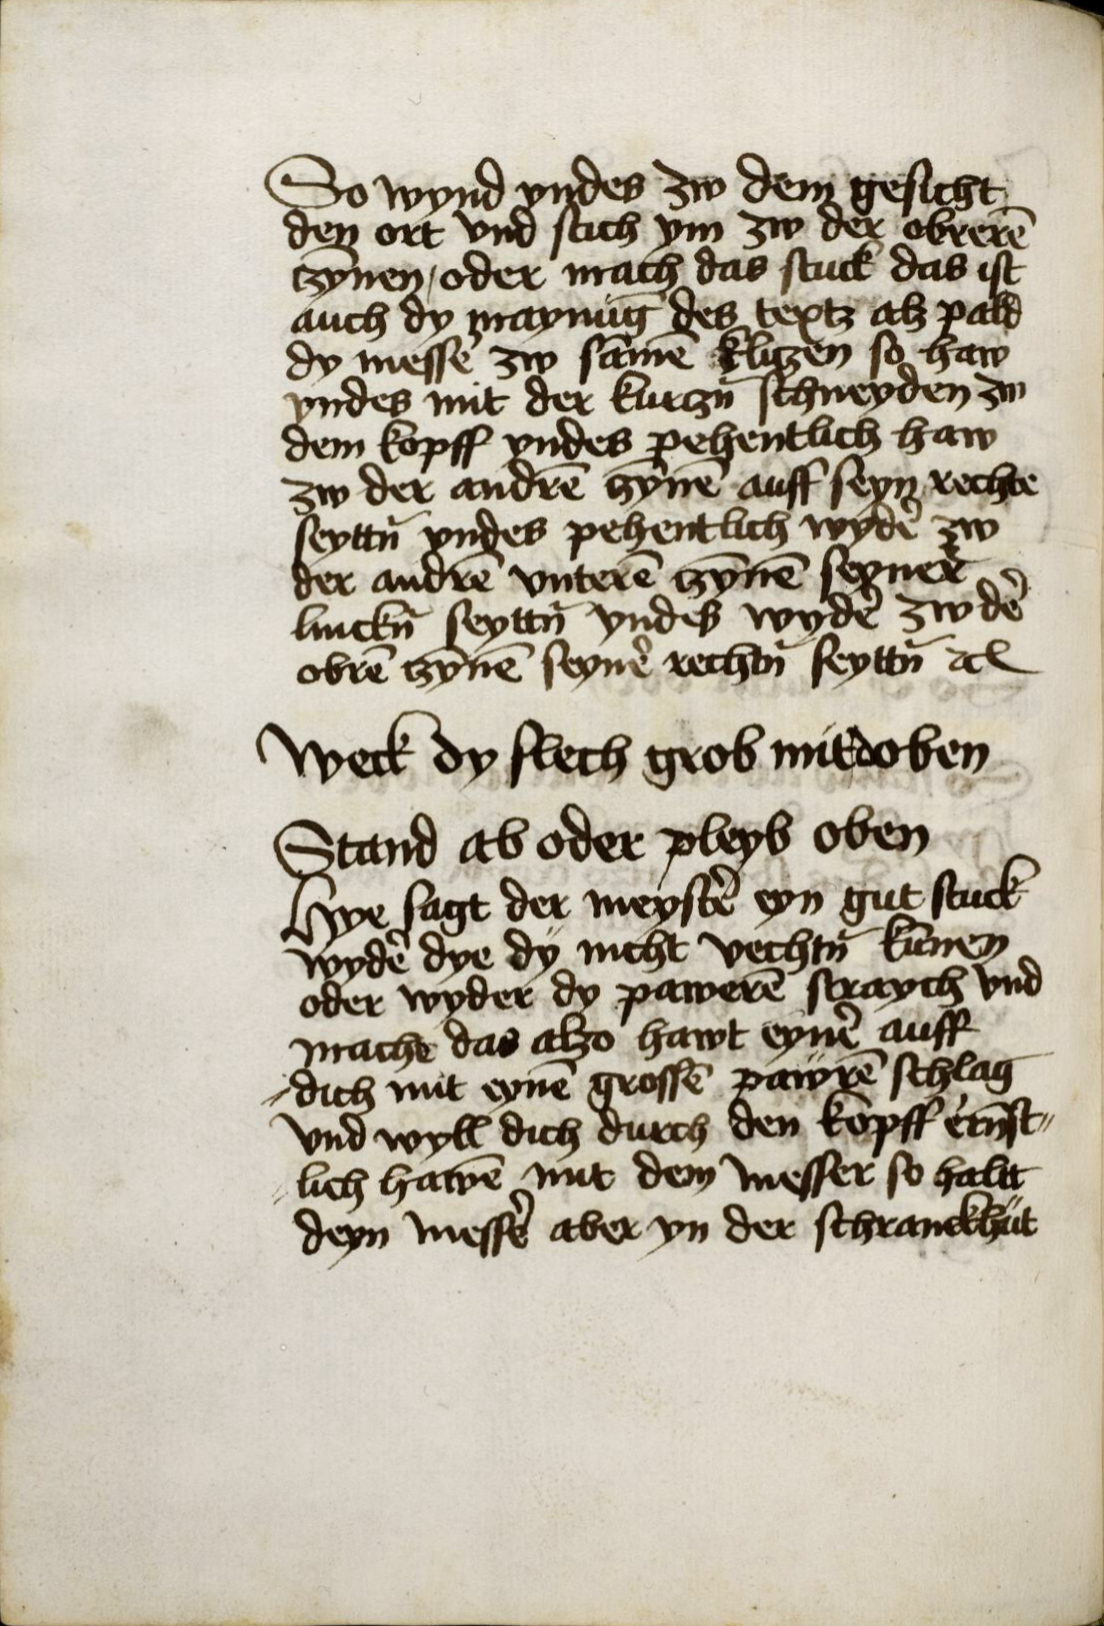 So wynd yndes zw dem gesicht
den ort vnd stich ym zw der obrerē
czynen / oder mach das stuck das ist
auch dy maynūg des textz alz pald
dy messe᷑ zw sāmē klitzen so haw
yndes mit der kurczn̄ schneyden zw
dem kopff yndes pehentlich haw
zw der andrē czȳnē auff seyn rechte
seyttn̄ yndes pehentlich wyde᷑ zw
der andrē vnterē czȳnē seyner
linckn̄ seyttn̄ yndes wyde᷑ zw de᷑
obrē czȳnē seyne᷑ rechtn̄ seyttn̄ ꝛc
Weck dy slech grob mit doben
Stand ab oder pleyb oben
Hye sagt der meyste᷑ eyn gut stuck
wyde᷑ dye dy nicht vechtn̄ kūnen
oder wyder dy pawerē straych vnd
mache das alzo hawt eyne᷑ auff
dich mit eynē grossē pawrē schlag
vnd wyll dich durch den kopff ernst„
„lich hawē mit dem messer so haltt
deyn messe᷑ aber yn der schranckhüt